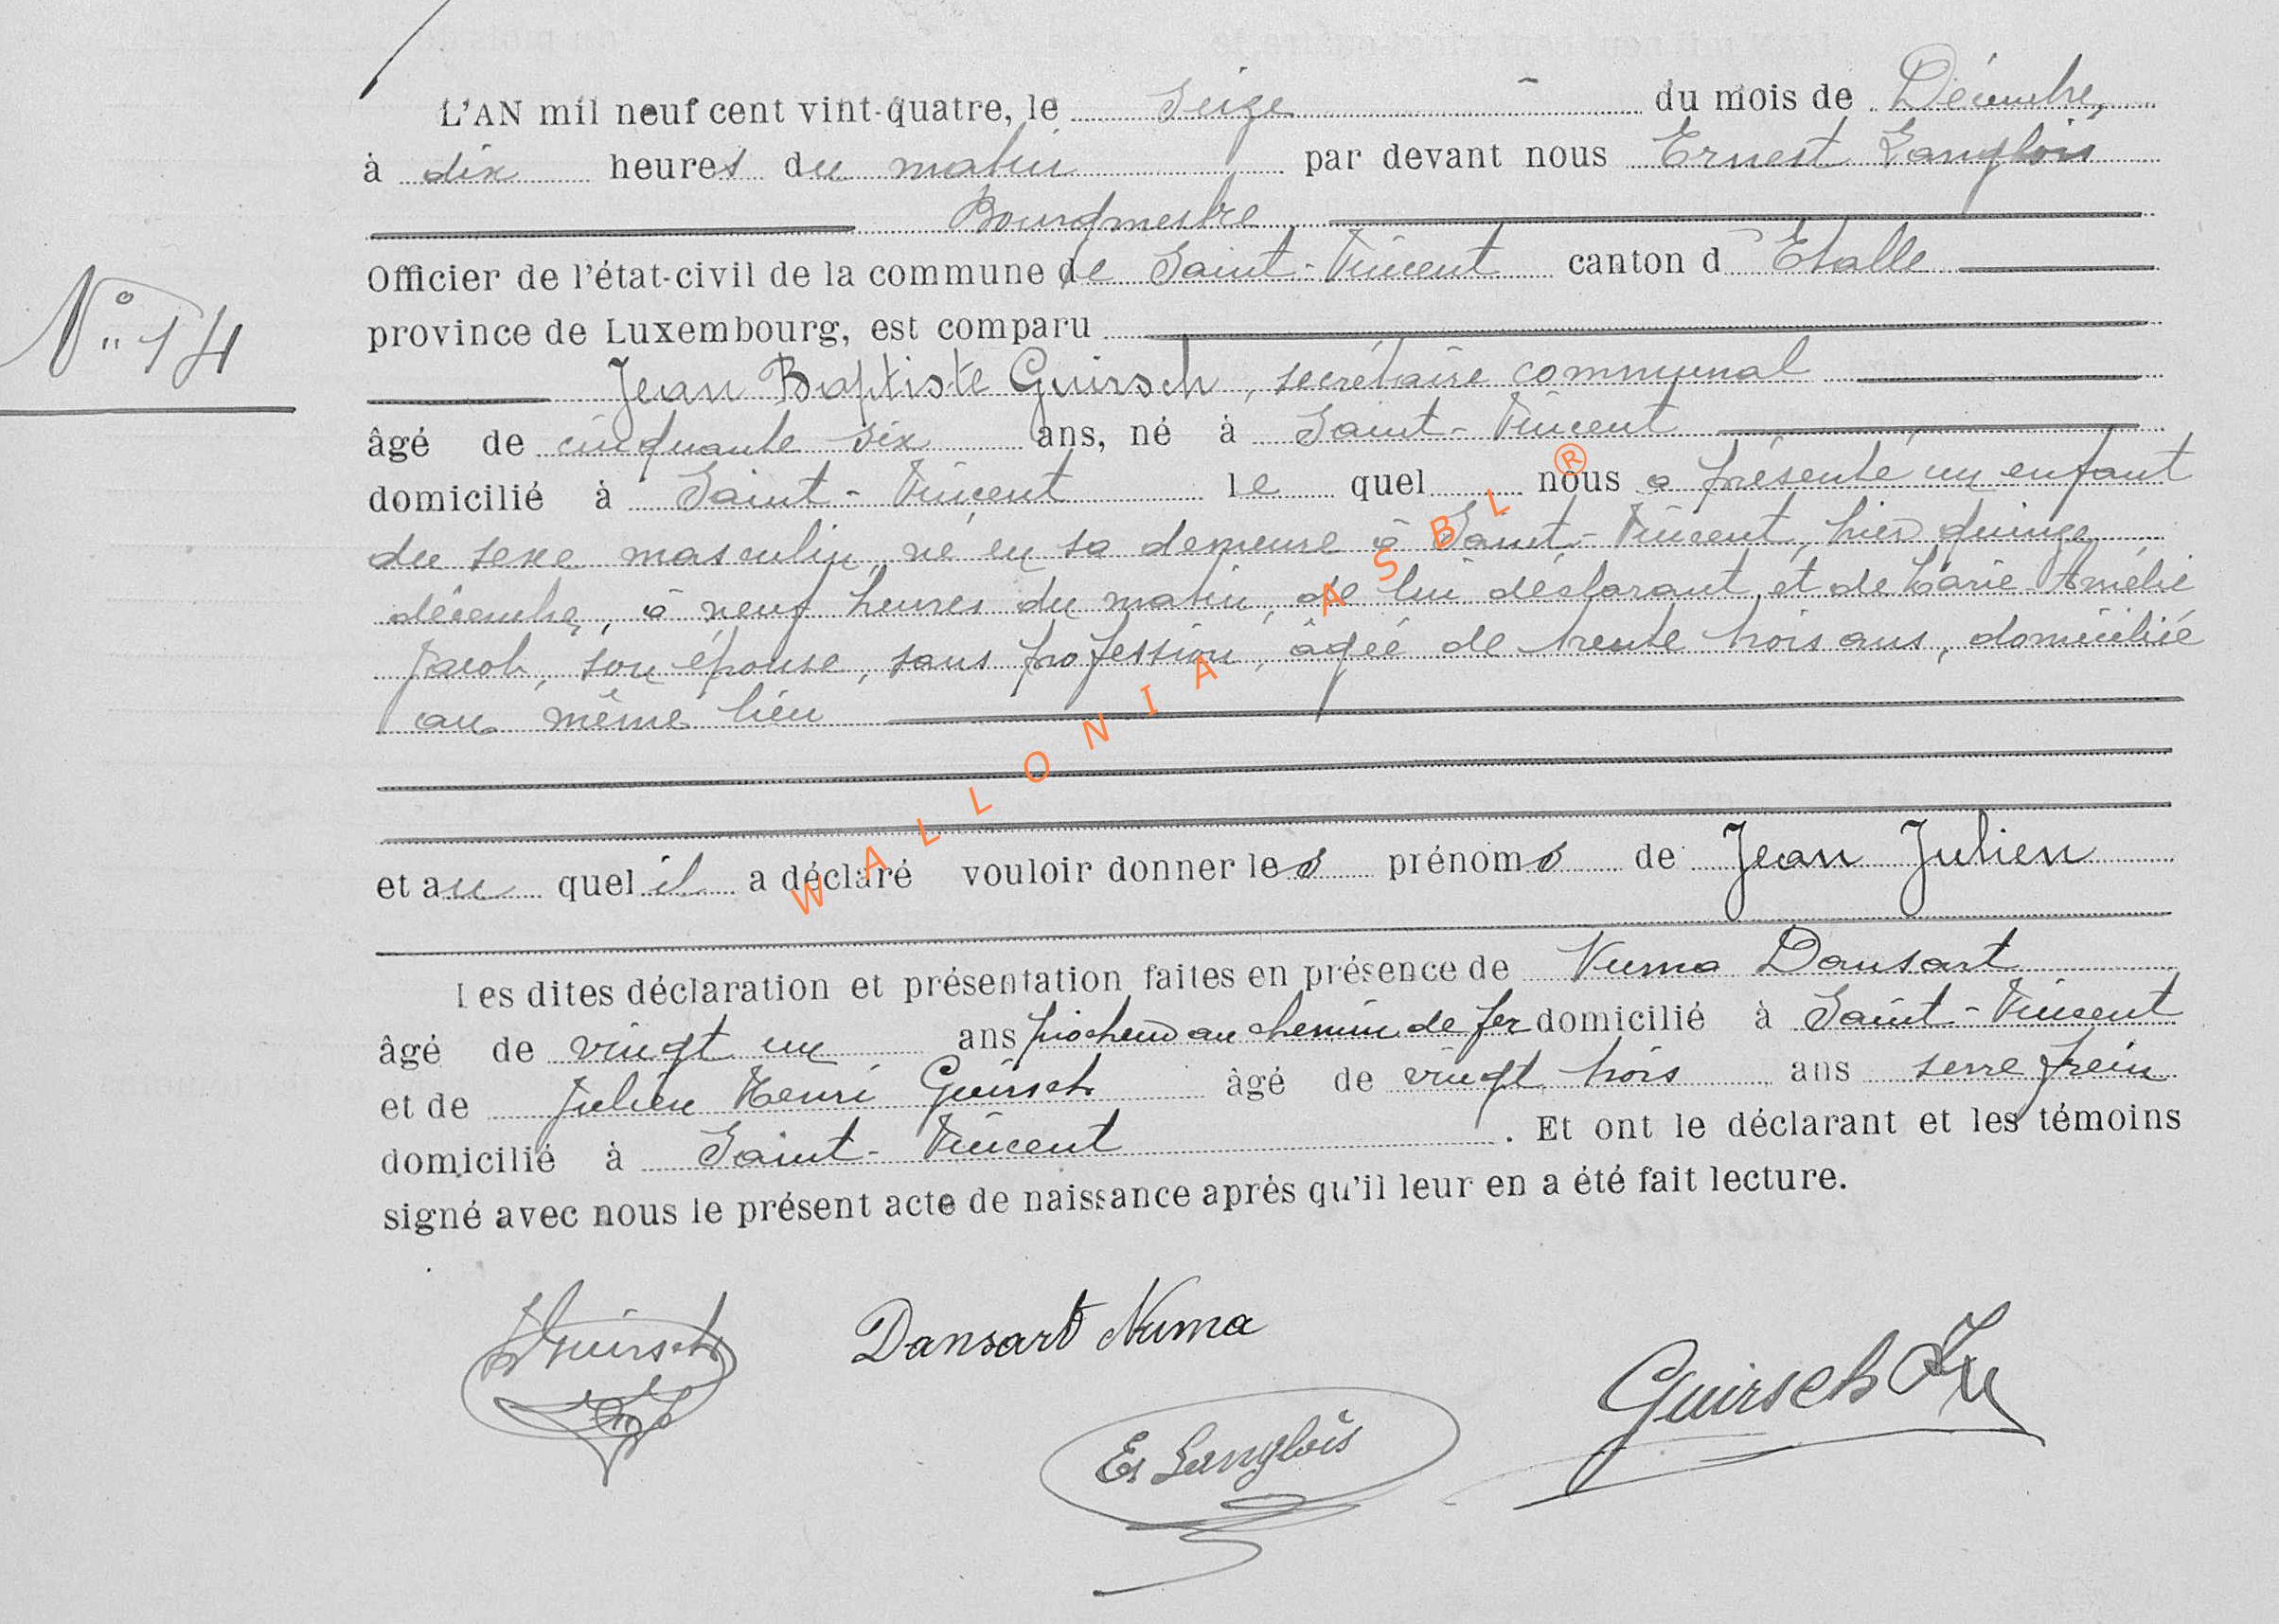 L'AN mil neuf cent vint-quatre, le seize du mois de Décembre,
à dix heures du matin par devant nous Ernest Langlois
Bourgmestre
Officier de l'état-civil de la commune de Saint-Vincent canton d'Etalle
province de Luxembourg, est comparu
N° 14
Jean Baptiste Guirsch, secrétaire communal
âgé de cinquante six ans, né à Saint-Vincent
domicilié à Saint-Vincent le quel nous a présenté un enfant
du sexe masculin, né en sa demeure à Saint-Vincent, hier quinze
décembre, à neuf heures du matin, de lui déclarant et de Marie Amélie
Jacob, son épouse, sans profession, âgée de trente trois ans, domiciliée
au même lieu
et au quel il a déclaré vouloir donner les prénoms de Jean Julien
Les dites déclaration et présentation faites en présence de Numa Dansart
âgé de vingt un ans piocheur au chemin de fer domicilié à Saint-Vincent
et de Julien Henri Guirsch âgé de vingt trois ans serre frein
domicilié à Saint-Vincent. Et ont le déclarant et les témoins
signé avec nous le présent acte de naissance après qu'il leur en a été fait lecture.
Guirsch Dansart Numa
Guirsch Ju
Es Langlois
WALLONIA ASBL ®